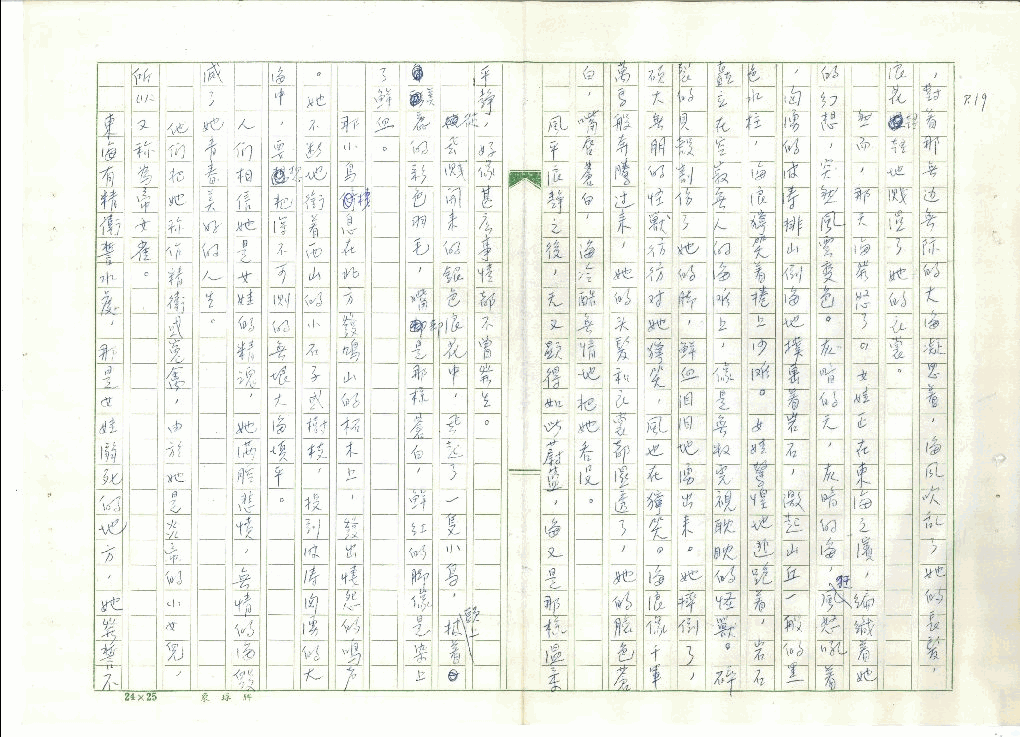 P.19
，對著那無边無际的大海凝思着，海風吹乱了她的長髮，
浪花輕輕地溅湿了她的衣裳。
然而，那天海發怒了。女娃正在東海之濱，編織着她
的幻想，突然風雲变色。灰暗的天，灰暗的海，狂風怒吼着
，洶湧的波濤排山倒海地撲裏着岩石，激起山丘一般的黑
色水柱，海浪獰笑着捲上沙灘。女娃驚惶地逃跑着，岩石
矗立在空寂無人的海岸上，像是無数虎視眈眈的怪獸。碎
裂的貝殼割伤了她的脚，鮮血汩汩地湧出来。她摔倒了，
碩大無朋的怪獸彷彿对她獰笑，風也在獰笑。海浪像千軍
萬馬般奔騰过来，她的头髮和衣裳都湿透了，她的臉色蒼
白，嘴唇蒼白，海冷酷無情地把她吞没。
風平浪靜之後，天又顯得如此蔚藍，海又是那樣温柔
平靜，好像甚么事情都不曾發生。
從飛溅開来的銀色浪花中，飛起了一隻小鳥，頭上披着
美麗的彩色羽毛，嘴卻是那樣蒼白，鮮红的脚像是染上
了鮮血。
那小鳥棲息在北方發鳩山的柘木上，發出憤怨的鳴声
。她不断地銜着西山的小石子或樹枝，投到波涛洶湧的大
海中，要想把深不可測的無垠大海填平。
人們相信她是女娃的精魂，她滿腔悲憤，無情的海毀
滅了她青春美好的人生。
他們把她称作精衛或冤禽，由於她是炎帝的小女兒，
所以又称為帝女雀。
東海有精衛誓水處，那是女娃溺死的地方，她發誓不
24×25